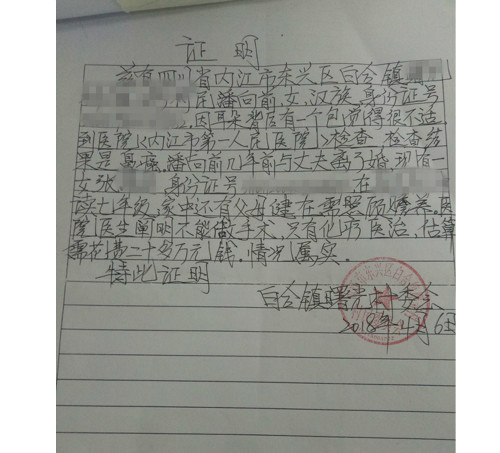 证明
兹有四川省内江市东兴区白合镇
村民潘向前,女,汉族,身份证号
,因耳朵背后有一个包觉得很不适,
到医院(内江市第一人民医院)检查,检查结
果是高癌.潘向前几年前与丈夫离了婚.现有一
女张 身份证号 在
读七年级.家中还有父母健在需要照顾赡养.医
院医生阐明不能做手术,只有化疗医治,估算
需花费二十多万元钱.情况属实.
特此证明
白合镇曙光村委会
2018年4月6日